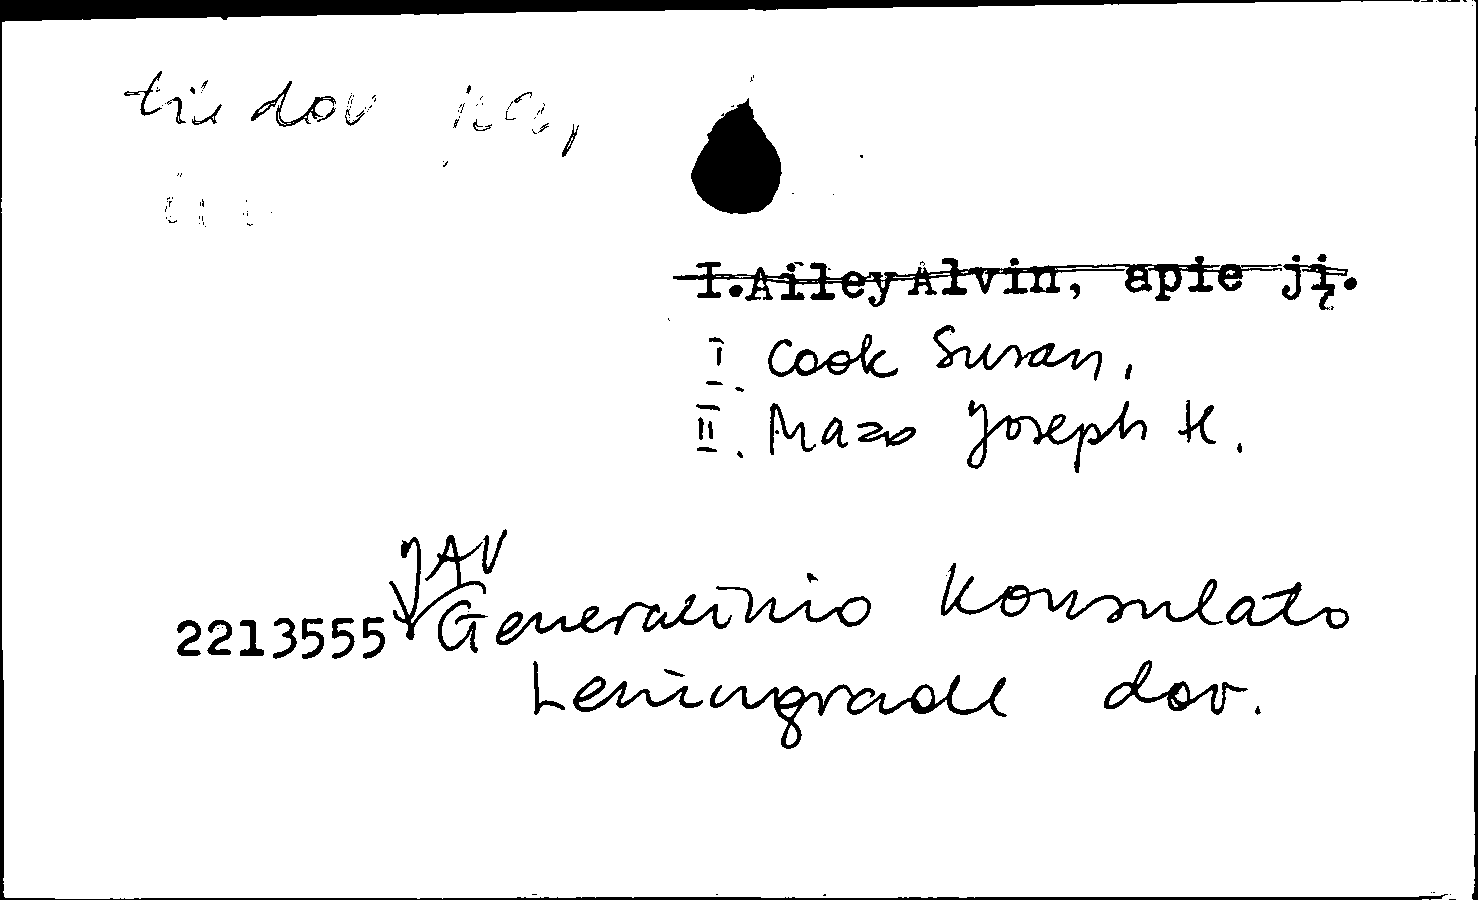 dov
I.Ailey Alvin, apie jį.
I. Cook Susan,
II. Mazo Joseph H.
JAV
2213555 Generalinio Konsulato
Leningrade dov.